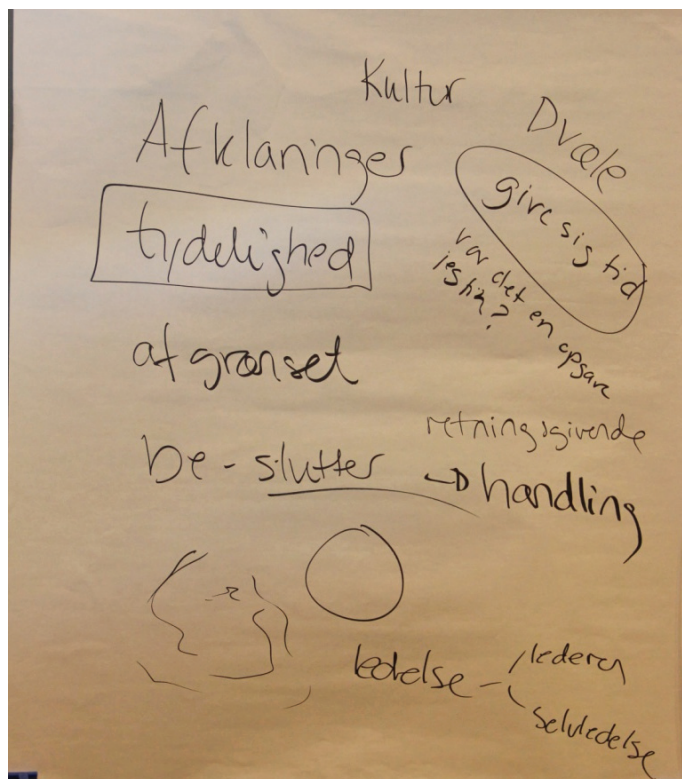 Kultur
Afklaringer
Dvæle
give sig tid
tydelighed
var det en opgave
jeg fik?
afgrænset
retningsgivende
be-slutter → handling
ledelse
lederen
selvledelse